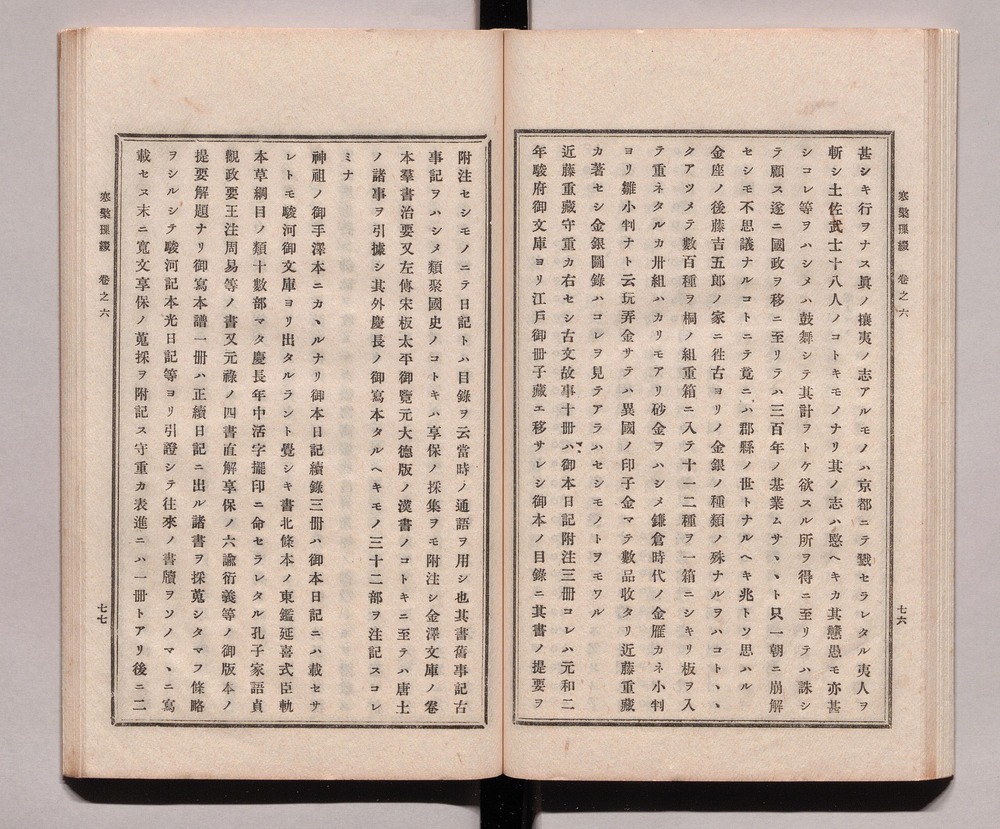 寒檠璅綴　卷之六
七六
甚シキ行ヲナス眞ノ攘夷ノ志アルモノハ京都ニテ戮セラレタル夷人ヲ
斬シ土佐武士十八人ノコトキモノナリ其ノ志ハ愍ヘキカ其戇愚モ亦甚
シコレ等ヲハシメハ鼓舞シテ其計ヲトケ欲スル所ヲ得ニ至リテハ誅シ
テ顧ス遂ニ國政ヲ移ニ至リテハ三百年ノ基業ムサヽヽト只一朝ニ崩解
セシモ不思議ナルコトニテ竟ニハ郡縣ノ世トナルヘキ兆トソ思ハル
金座ノ後藤吉五郎ノ家ニ徃古ヨリノ金銀ノ種類ノ殊ナルヲハコトヽヽ
クアツメテ數百種ヲ桐ノ組重箱ニ入テ十一二種ヲ一箱ニシキリ板ヲ入
テ重ネタルカ卅組ハカリモアリ砂金ヲハシメ鎌倉時代ノ金雁カネ小判
ヨリ雛小判ナト云玩弄金サテハ異國ノ印子金マテ數品收タリ近藤重藏
カ著セシ金銀圖錄ハコレヲ見テアラハセシモノトヲモワル
近藤重藏守重カ右セシ古文故事十冊ハ御本日記附注三冊コレハ元和二
年駿府御文庫ヨリ江戸御冊子藏エ移サレシ御本ノ目錄ニ其書ノ提要ヲ
附注セシモノニテ日記トハ目錄ヲ云當時ノ通語ヲ用シ也其書舊事記古
事記ヲハシメ類聚國史ノコトキハ享保ノ採集ヲモ附注シ金澤文庫ノ卷
本羣書治要又左傳宋板太平御覽元大德版ノ漢書ノコトキニ至テハ唐土
ノ諸事ヲ引據シ其外慶長ノ御寫本タルヘキモノ三十二部ヲ注記スコレ
ミナ
神祖ノ御手澤本ニカヽルナリ御本日記續錄三冊ハ御本日記ニハ載セサ
レトモ駿河御文庫ヨリ出タルラント覺シキ書北條本ノ東鑑延喜式臣軌
本草綱目ノ類十數部マタ慶長年中活字擺印ニ命セラレタル孔子家語貞
觀政要王注周易等ノ書又元祿ノ四書直解享保ノ六諭衍義等ノ御版本ノ
提要解題ナリ御寫本譜一冊ハ正續日記ニ出ル諸書ヲ採蒐シタマフ條略
ヲシルシテ駿河記本光日記等ヨリ引證シテ往來ノ書牘ヲソノマヽニ寫
載セス末ニ寬文享保ノ蒐採ヲ附記ス守重カ表進ニハ一冊トアリ後ニ二
寒檠璅綴　卷之六
七七